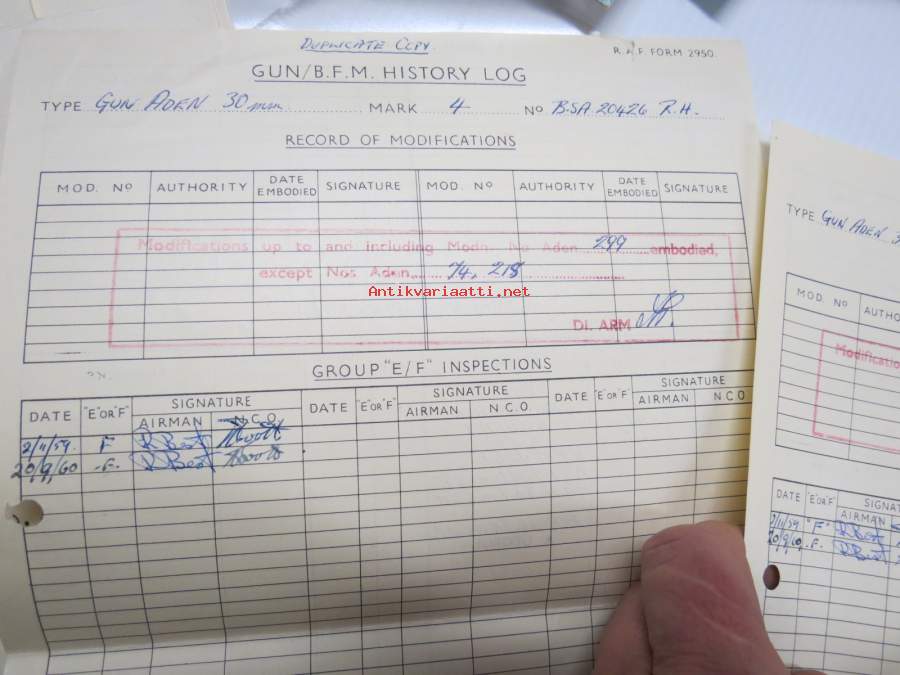 DUPLICATE COPY.
R.A.F. FORM 2950.
GUN/B.F.M. HISTORY LOG
TYPE GUN ADEN 30 mm. MARK 4 No BSA 20426 R.H.
RECORD OF MODIFICATIONS
MOD. No AUTHORITY DATE EMBODIED SIGNATURE MOD. No AUTHORITY DATE EMBODIED SIGNATURE
Modifications up to and including Modn. No Aden 299 embodied,
except Nos Aden 74, 218
Antikvariaatti.net
DI. ARM
GROUP "E/F" INSPECTIONS
DATE "E" OR "F" SIGNATURE DATE "E" OR "F" SIGNATURE DATE "E" OR "F" SIGNATURE
AIRMAN N.C.O. AIRMAN N C O AIRMAN N C O
2/11/59. F R Best
20/9/60 -F- R Best
TYPE GUN ADEN 3
MOD. No AUTHO
Modification
DATE "E" OR "F" SIGNAT
AIRMAN
2/11/59 "F" R Best
20/9/60, -F- R Best